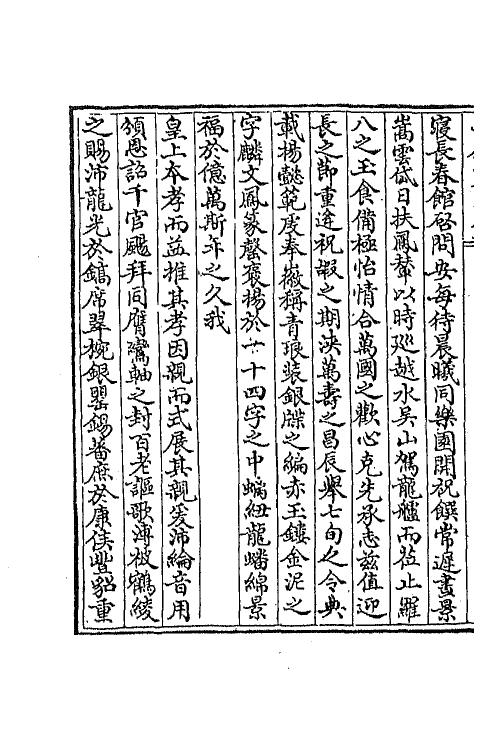 寢長春館啓問安每待晨曦同樂園開祝饌常遲晝景
嵩雲岱日扶鳳輦以時廵越水吳山駕龍艫而蒞止羅
八之玉食備極怡情合萬國之歡心克先承志兹值迎
長之節重逢祝嘏之期浹萬壽之昌辰舉七旬之令典
載揚懿範度奉徽稱青琅裝銀牒之編赤玉鏤金泥之
字麟文鳳篆罄襃揚於十四字之中螭紐龍蟠綿景
福於億萬斯年之久我
皇上本孝而益推其孝因親而式展其親爰沛綸音用
頒恩詔千官颺拜同膺鸞軸之封百老謳歌溥被鶴綾
之賜沛龍光於鎬席翠椀銀罌錫蕃庶於康侯豐貂重